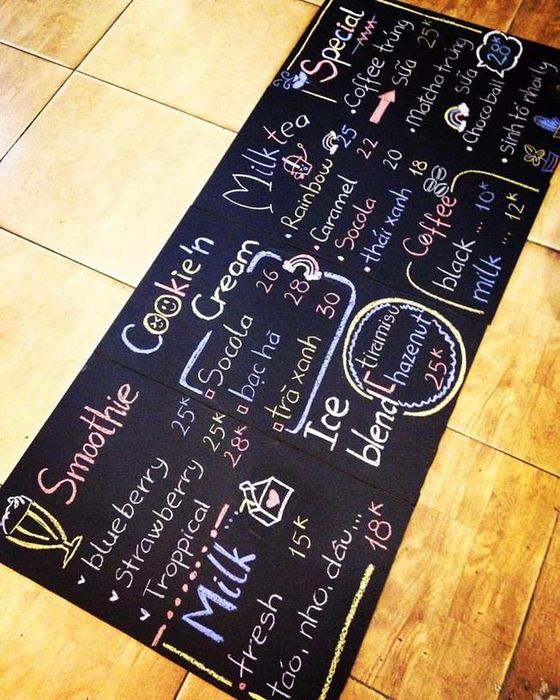 Special
Coffee trứng
Sữa 25K
Matcha trứng
Sữa 28K
Chocoball
Sinh tố nha
Milk tea
Rainbow 25
Caramel 22
Socola 20
thái xanh 18
Coffee
black ... 10K
milk ... 12K
Cookie'n
Cream
Socola 26
bạc hà 28
trà xanh 30
Ice
blend
tiramisu
hazenut
25K
Smoothie
blueberry 25K
Strawberry 25K
Troppical 28K
Milk
fresh 15K
táo, nho, dâu... 18K